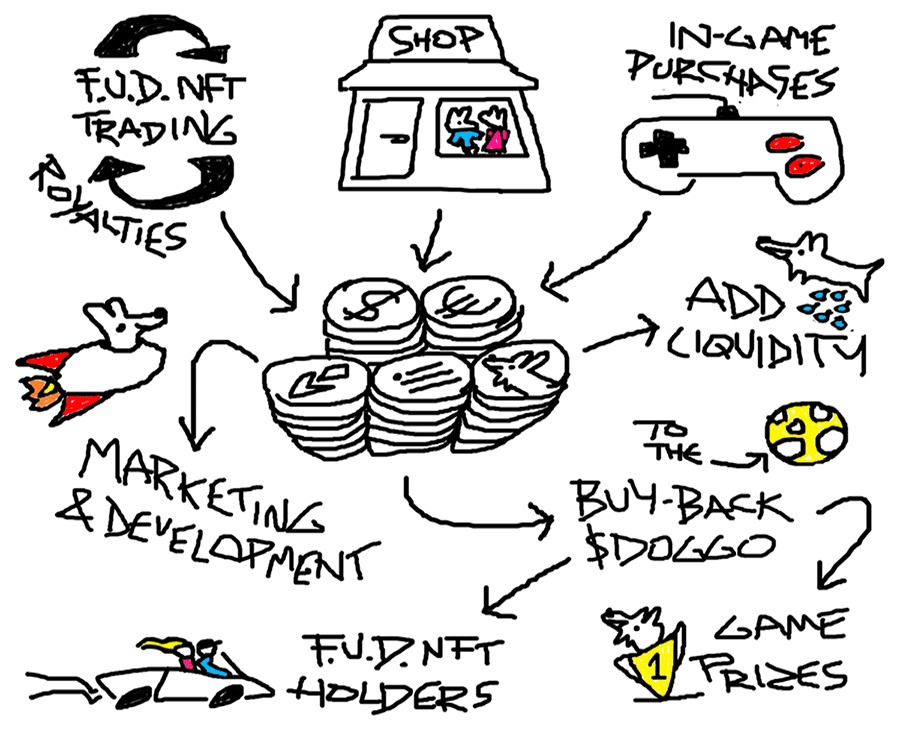 F.U.D. NFT
TRADING
ROYALTIES
SHOP
IN-GAME
PURCHASES
$
€
ADD
LIQUIDITY
MARKETING
& DEVELOPMENT
TO
THE
BUY-BACK
$DOGGO
F.U.D. NFT
HOLDERS
1
GAME
PRIZES